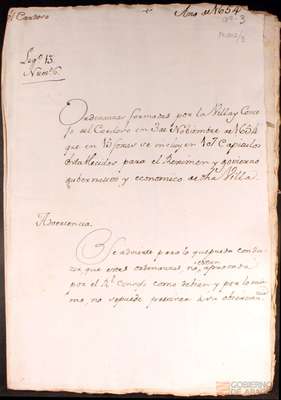 El Castoro
Año de 1654
nº 3
Leg.º 13.
Num.º 6.
Ordenanzas formadas por la Villa y Conce
jo del Castoro en 3 de Noviembre de 1654
que en foxas se incluyen Capitulos
establecidos para el Regimen y govierno
gubernativo y economico de dha Villa.
Advertencia.
Se advierte para lo que pueda condu
zir, que estas ordenanzas, no estan aprovadas
por el R.l Consejo como debian y por lo mis
mo, no se puede precisar a su observan.cia
GOBIERNO
DE ARAGON